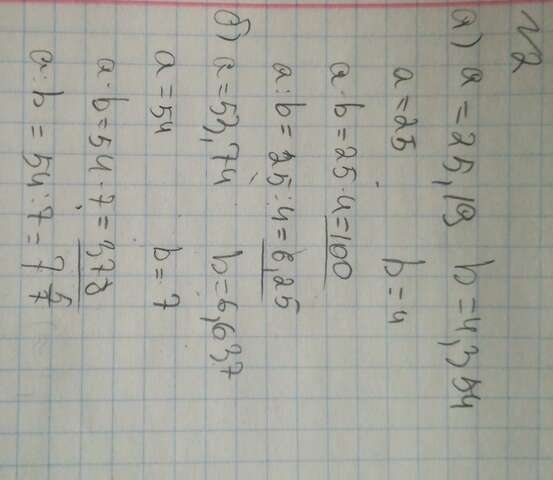 №2
а) a = 25,19 b = 4,354
a = 25 b = 4
a · b = 25 · 4 = 100
a : b = 25 : 4 = 6,25
б) a = 53,74 b = 6,637
a = 54 b = 7
a · b = 54 · 7 = 378
a : b = 54 : 7 = 7 5/7